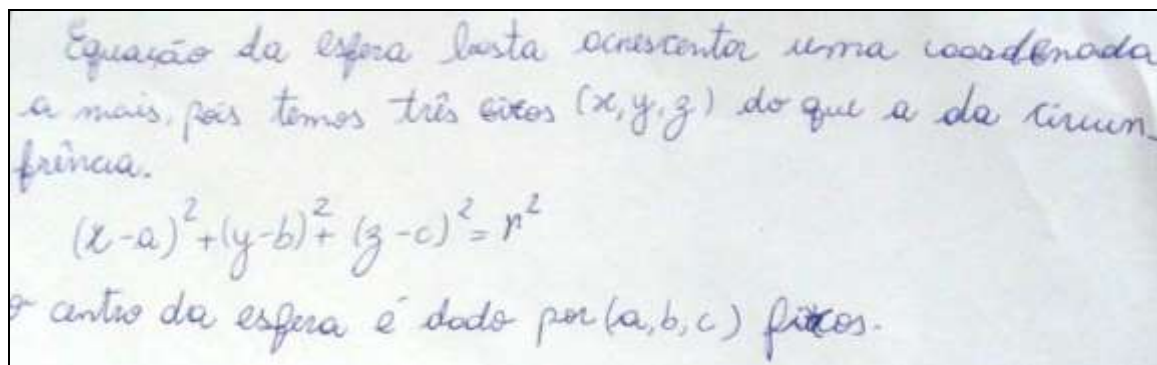 Equação da esfera basta acrescentar uma coordenada
a mais, pois temos três eixos (x, y, z) do que a da circun_
frência.
(x-a)²+(y-b)²+(z-c)²=r²
o centro da esfera é dado por (a, b, c) fixos.